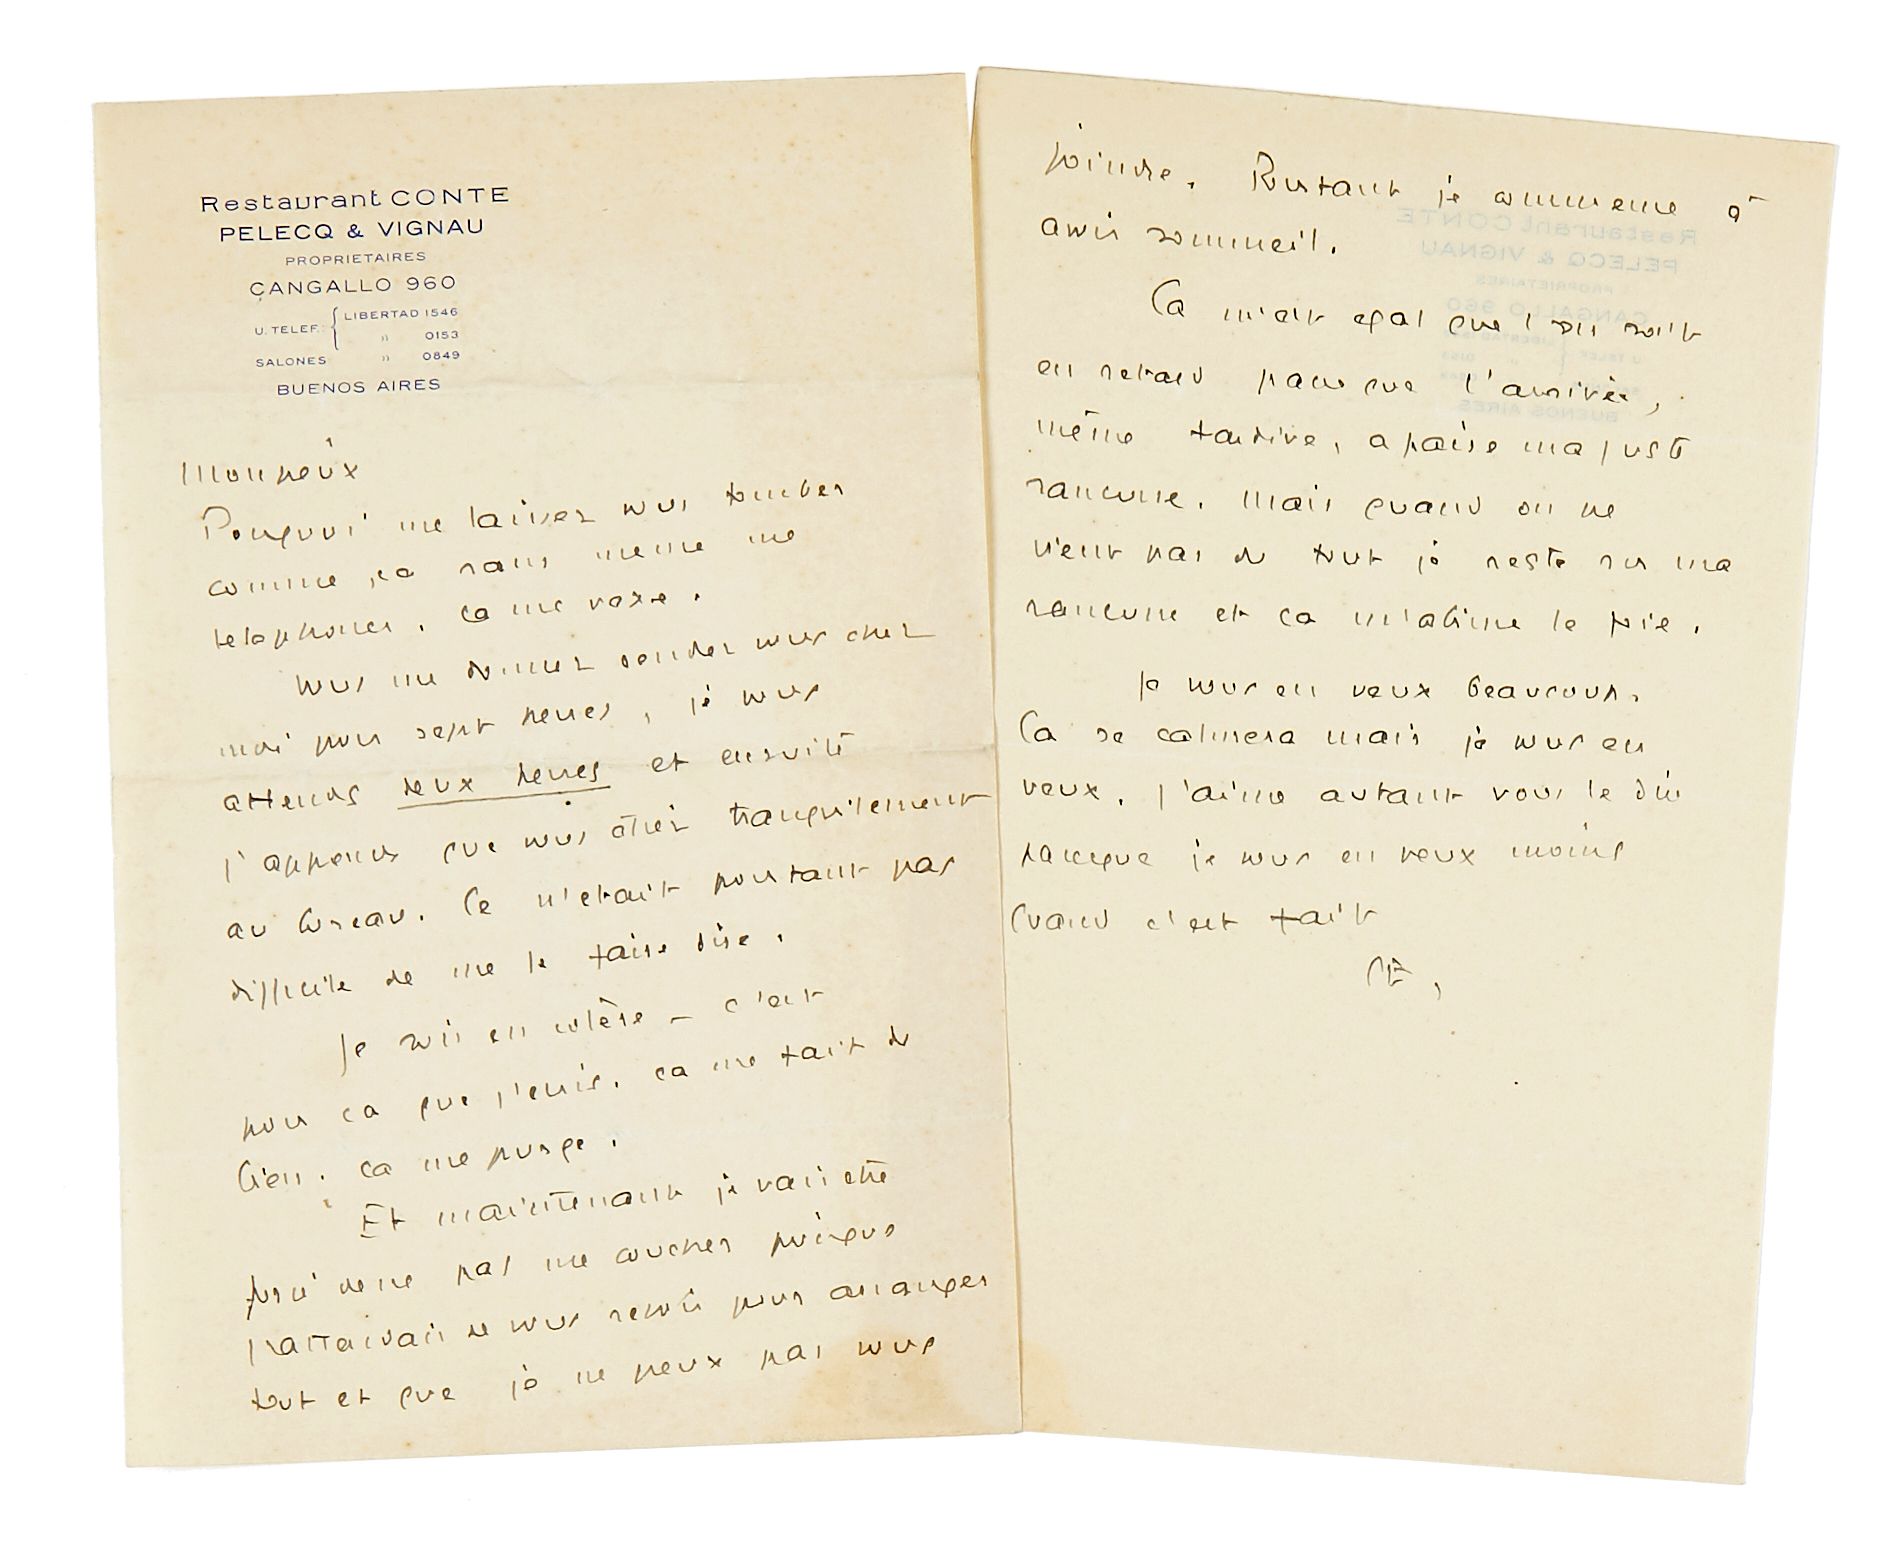 Restaurant CONTE
PELECQ & VIGNAU
PROPRIETAIRES
CANGALLO 960
U. TELEF.: { LIBERTAD 1546
" 0153
SALONES " 0849
BUENOS AIRES
Pourquoi me laissez vous tomber
comme ça sans meme me
telephoner. ça me vexe.
Vous me donnez rendez vous chez
moi pour sept heures, je vous
attends deux heures et ensuite
j'apprends que vous étiez tranquilement
au bureau. Ce n'etait pourtant pas
difficile de me le faire dire.
Je suis en colère – c'est
pour ça que j'ecris. ça me fait du
bien. ça me purge.
Et maintenant je vais etre
forcé de ne pas me coucher puisque
j'attendais de vous revoir pour arranger
tout et que je ne peux pas vous
joindre. Pourtant je commence à
avoir sommeil.
Ca m'est egal que l'on soit
en retard parceque l'arrivée,
même tardive, apaise ma juste
rancune. Mais quand on ne
vient pas du tout je reste sur ma
rancune et ça m'abime le foie.
Je vous en veux beaucoup.
Ca se calmera mais je vous en
veux. J'aime autant vous le dire
parceque je vous en veux moins
quand c'est fait